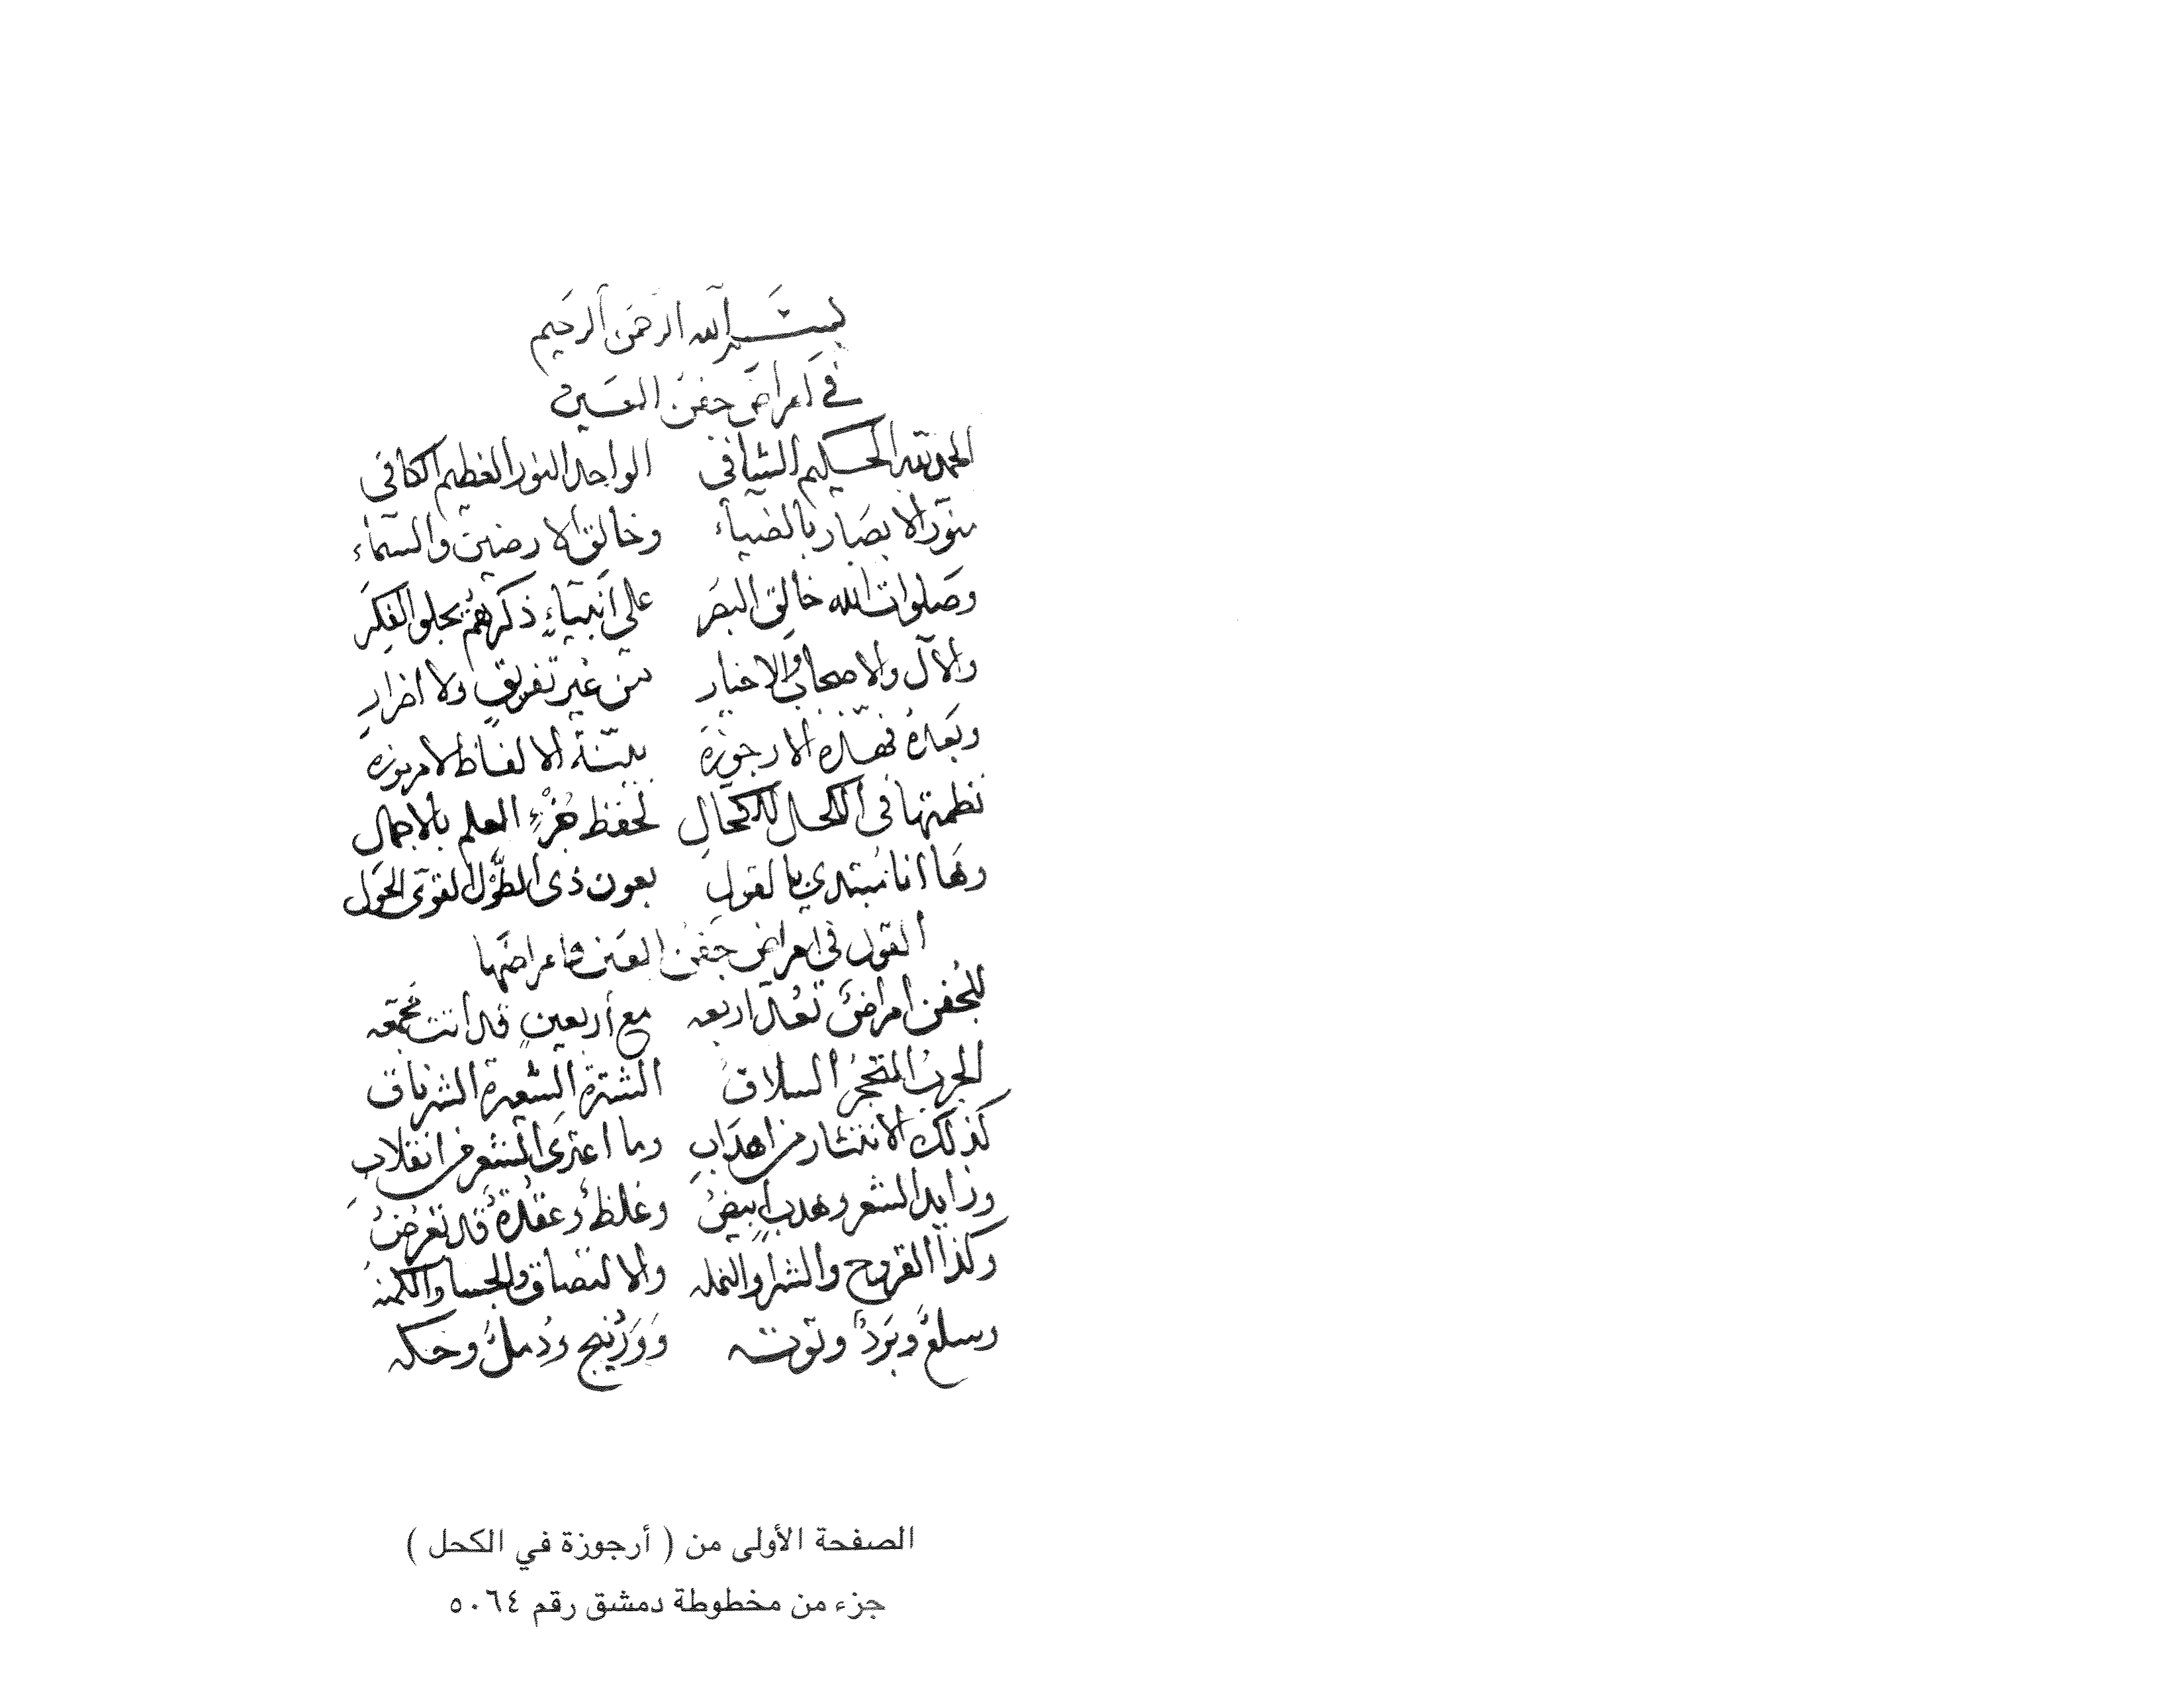 بسم الله الرحمن الرحيم
في امراض جفن العين
الحمد لله الحكيم الشافي الواحد النور العظيم الكافي
منور الابصار بالضياء وخالق الارضين والسماء
وصلوات الله خالق البصر على انبياء ذكرهم يجلو الفكر
والآل والاصحاب والاخيار من غير تفريق ولا اضرار
وبعده فهذه الارجوزة بينة الالفاظ لا مرموزه
نظمتها في الكحل للكحال لحفظ جزء العلم بالاجمال
وها انا مبتدي بالقول بعون ذي الطول القوي الحول
القول في امراض جفن العين واعراضها
للجفن امراض تعد اربعه مع أربعين قد اتت مجمعه
الجرب التحجر السلاق الشترة الشعيرة الشرناق
كذلك الانتثار من اهداب وما اعترى الشعر من انقلاب
وزايد الشعر وهدب ابيض وغلظ وعقدة قد تعرض
وكذا القروح والشرا والنمله والالتصاق والجسا والكمنه
وسلع وبرد وتوته وورينج ودمل وحكه
الصفحة الأولى من ( أرجوزة في الكحل )
جزء من مخطوطة دمشق رقم ٥٠٦٤